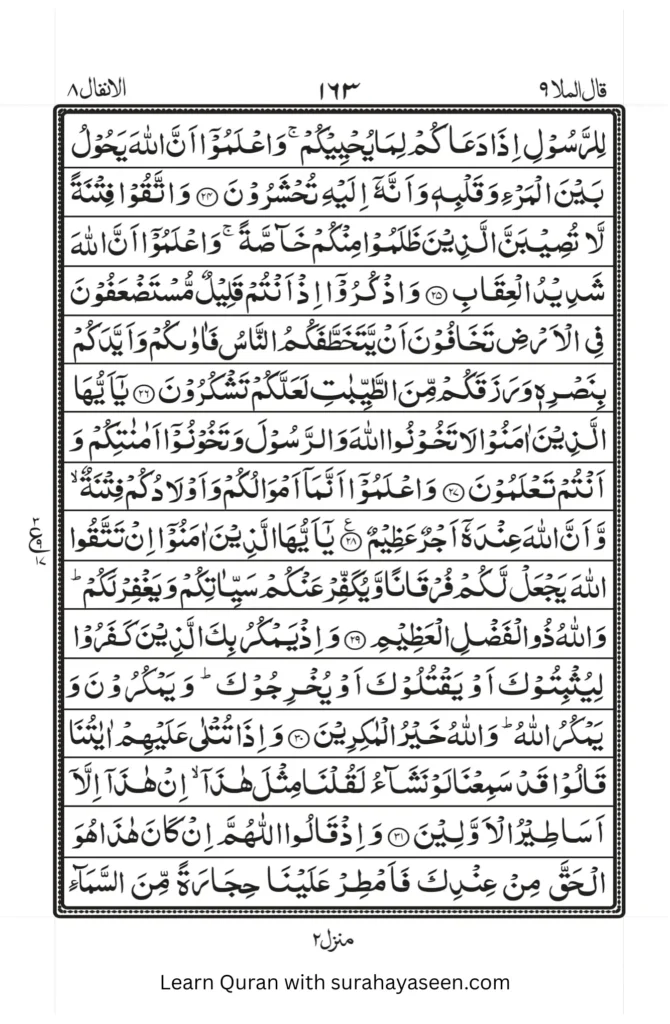 قال الملا ٩
١٦٣
الانفال ٨
لِلرَّسُوۡلِ اِذَا دَعَاكُمۡ لِمَا يُحۡيِيۡكُمۡ ۚ وَاعۡلَمُوۡۤا اَنَّ اللّٰهَ يَحُوۡلُ
بَيۡنَ الۡمَرۡءِ وَقَلۡبِهٖ وَاَنَّهٗۤ اِلَيۡهِ تُحۡشَرُوۡنَ ﴿۲۴﴾ وَاتَّقُوۡا فِتۡنَةً
لَّا تُصِيۡبَنَّ الَّذِيۡنَ ظَلَمُوۡا مِنۡكُمۡ خَآصَّةً ۚ وَاعۡلَمُوۡۤا اَنَّ اللّٰهَ
شَدِيۡدُ الۡعِقَابِ ﴿۲۵﴾ وَاذۡكُرُوۡۤا اِذۡ اَنۡتُمۡ قَلِيۡلٌ مُّسۡتَضۡعَفُوۡنَ
فِى الۡاَرۡضِ تَخَافُوۡنَ اَنۡ يَّتَخَطَّفَكُمُ النَّاسُ فَاٰوٰٮكُمۡ وَاَيَّدَكُمۡ
بِنَصۡرِهٖ وَرَزَقَكُمۡ مِّنَ الطَّيِّبٰتِ لَعَلَّكُمۡ تَشۡكُرُوۡنَ ﴿۲۶﴾ يٰۤاَيُّهَا
الَّذِيۡنَ اٰمَنُوۡا لَا تَخُوۡنُوا اللّٰهَ وَالرَّسُوۡلَ وَتَخُوۡنُوۡۤا اَمٰنٰتِكُمۡ وَ
اَنۡتُمۡ تَعۡلَمُوۡنَ ﴿۲۷﴾ وَاعۡلَمُوۡۤا اَنَّمَاۤ اَمۡوَالُكُمۡ وَاَوۡلَادُكُمۡ فِتۡنَةٌ ۙ
وَّاَنَّ اللّٰهَ عِنۡدَهٗۤ اَجۡرٌ عَظِيۡمٌ ﴿۲۸﴾ ع يٰۤاَيُّهَا الَّذِيۡنَ اٰمَنُوۡۤا اِنۡ تَتَّقُوا
اللّٰهَ يَجۡعَلْ لَّكُمۡ فُرۡقَانًا وَّيُكَفِّرۡ عَنۡكُمۡ سَيِّاٰتِكُمۡ وَيَغۡفِرۡ لَـكُمۡ ؕ
وَاللّٰهُ ذُو الۡفَضۡلِ الۡعَظِيۡمِ ﴿۲۹﴾ وَاِذۡ يَمۡكُرُ بِكَ الَّذِيۡنَ كَفَرُوۡا
لِيُثۡبِتُوۡكَ اَوۡ يَقۡتُلُوۡكَ اَوۡ يُخۡرِجُوۡكَ ؕ وَيَمۡكُرُوۡنَ وَ
يَمۡكُرُ اللّٰهُ ؕ وَاللّٰهُ خَيۡرُ الۡمٰكِرِيۡنَ ﴿۳۰﴾ وَاِذَا تُتۡلٰى عَلَيۡهِمۡ اٰيٰتُنَا
قَالُوۡا قَدۡ سَمِعۡنَا لَوۡ نَشَآءُ لَقُلۡنَا مِثۡلَ هٰذَاۤ ۙ اِنۡ هٰذَاۤ اِلَّاۤ
اَسَاطِيۡرُ الۡاَوَّلِيۡنَ ﴿۳۱﴾ وَاِذۡ قَالُوا اللّٰهُمَّ اِنۡ كَانَ هٰذَا هُوَ
الۡحَقَّ مِنۡ عِنۡدِكَ فَاَمۡطِرۡ عَلَيۡنَا حِجَارَةً مِّنَ السَّمَآءِ
منزل ٢
Learn Quran with surahayaseen.com